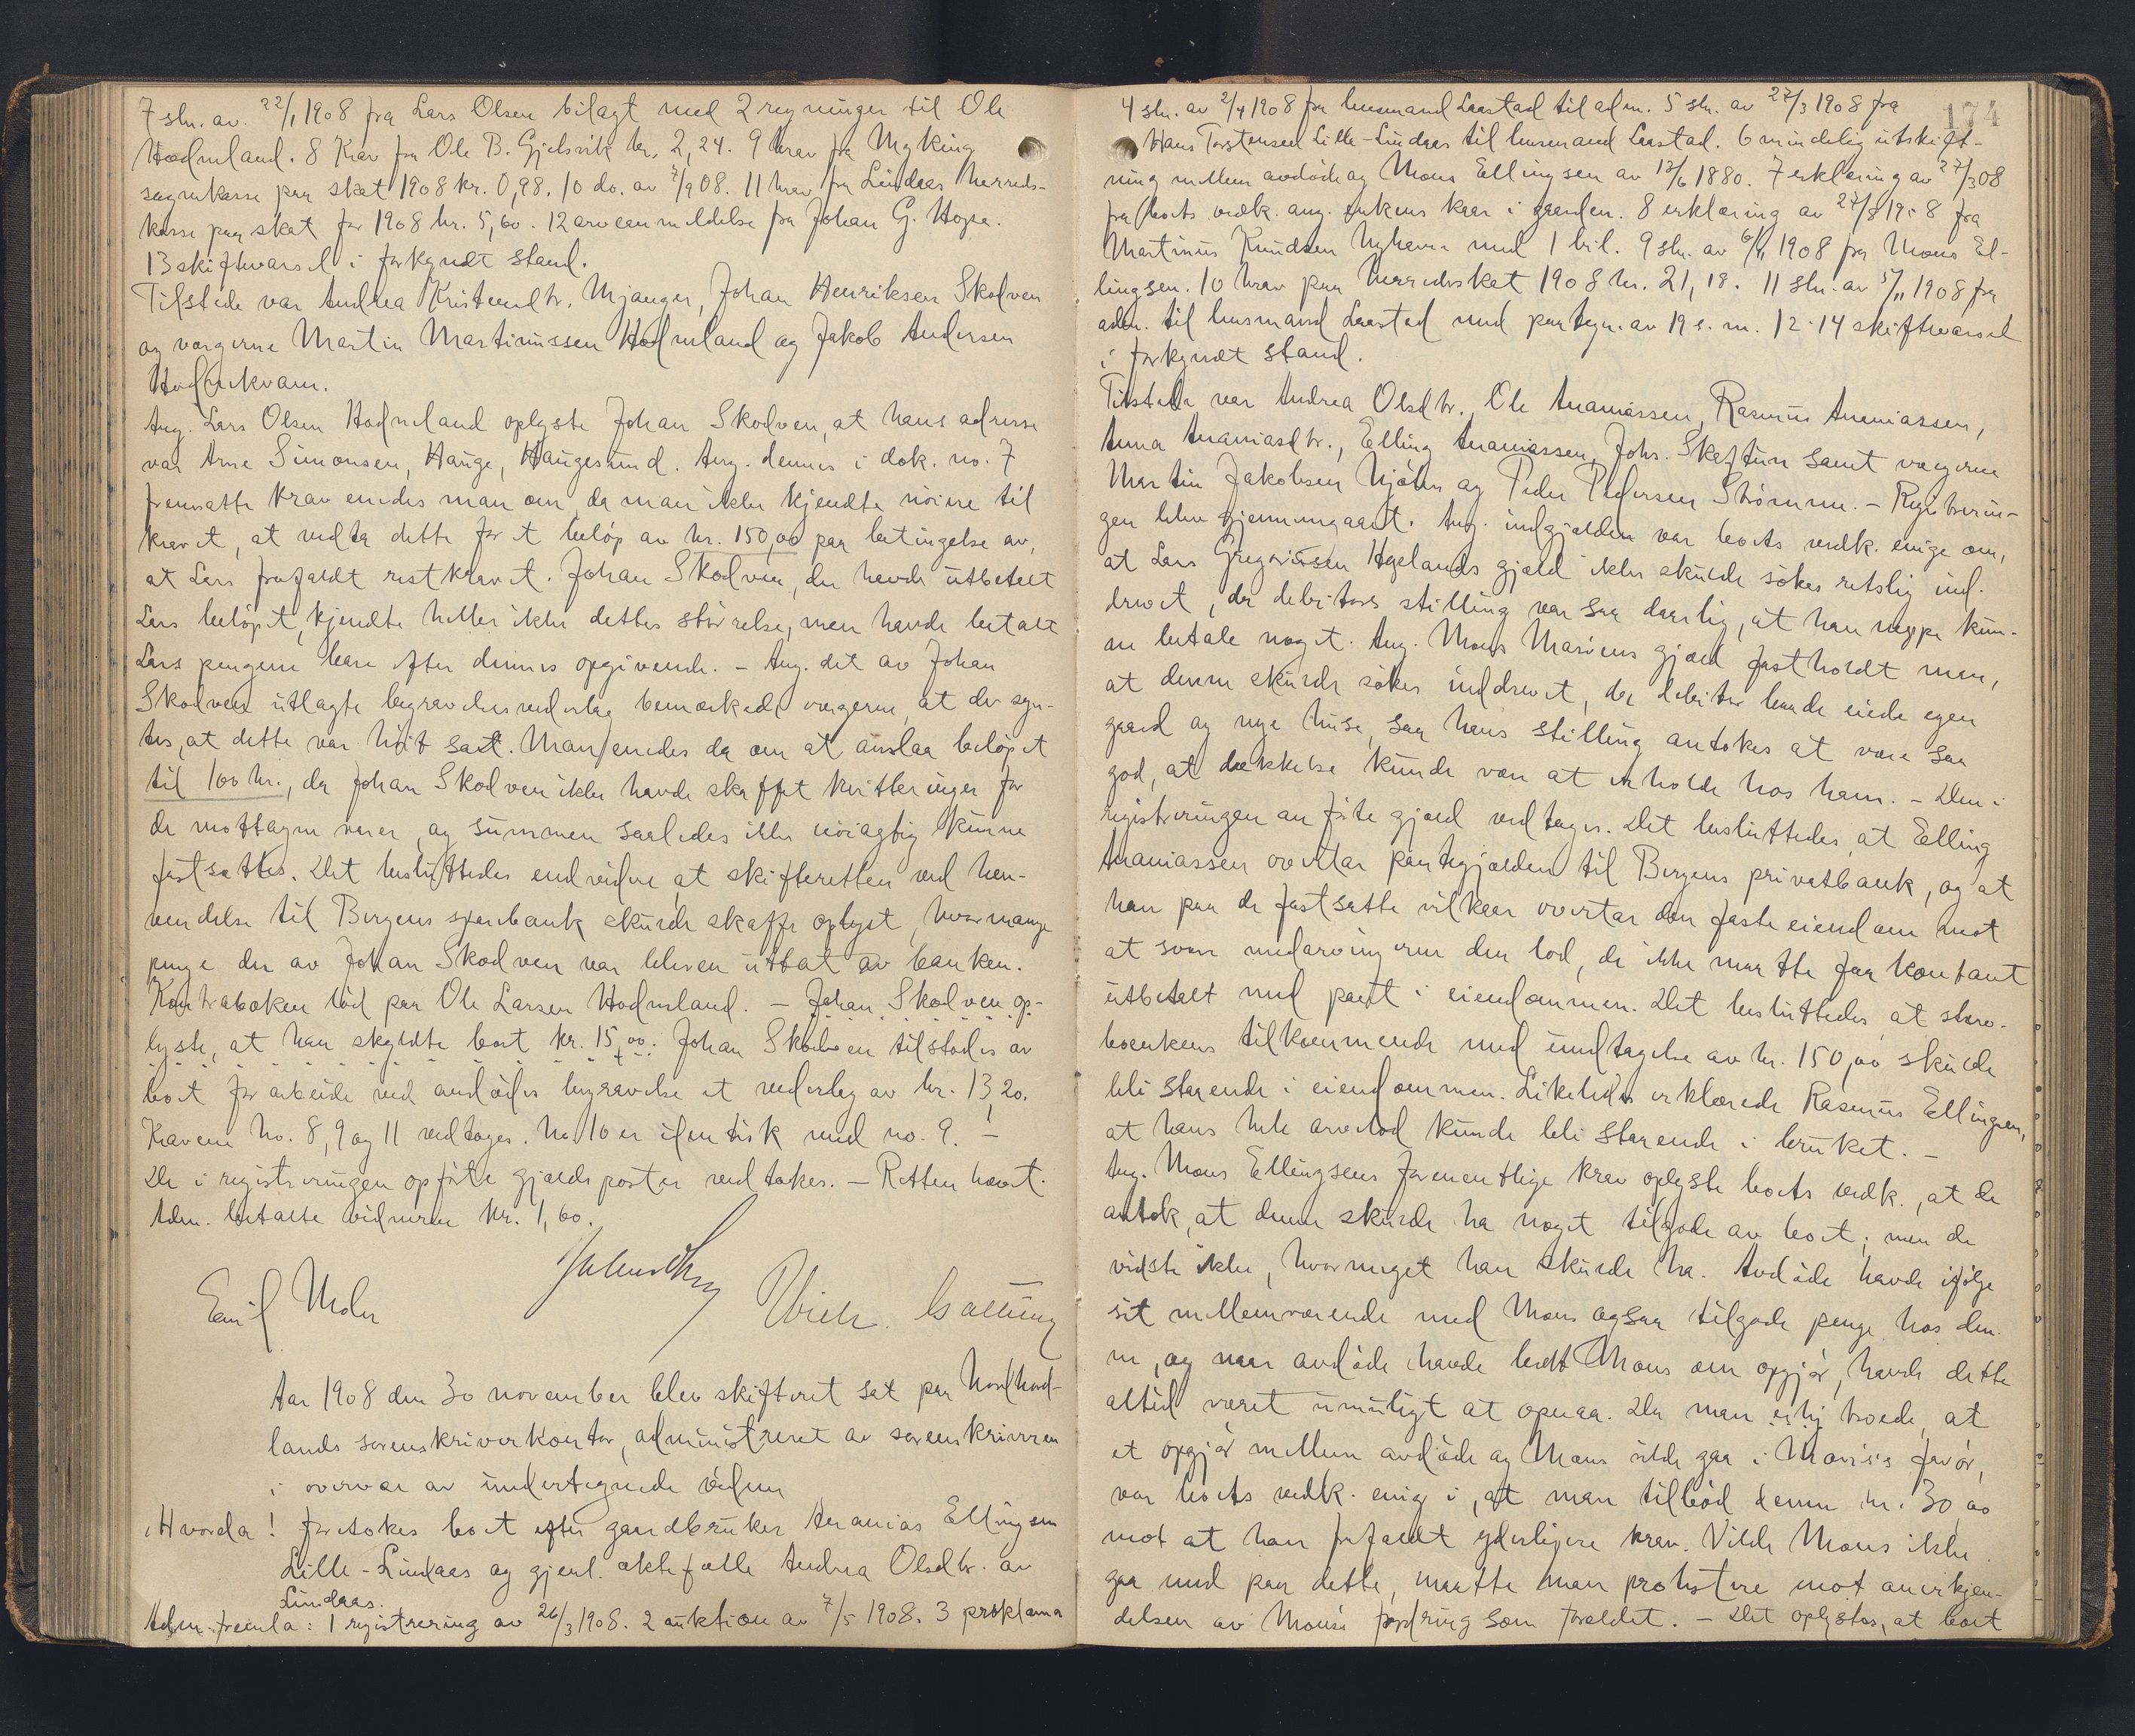 7 skr. av. 22/1 1908 fra Lars Olsen bilagt med 2 regninger til Ole
Hodneland. 8 Krav fra Ole B. Gjelsvik kr. 2,24. 9 krav fra Myking
sognekasse paa skat 1908 kr. 0,98. 10 do. av 7/9 08. 11 krav fra Lindaas herreds-
kasse paa skat for 1908 kr. 5,60. 12 arveanmeldelse fra Johan G. Hope.
13 skiftevarsel i forkyndt stand.
Tilstede var Andrea Kristensdtr. Mjanger, Johan Henriksen Skodven
og vergerne Martin Martinussen Hodneland og Jakob Andersen
Hodnekvam.
Ang. Lars Olsen Hodneland oplyste Johan Skodven, at hans adresse
var Arne Simonsen, Hauge, Haugesund. Ang. dennes i dok. no. 7
fremsatte krav enedes man om, da man ikke kjendte nöiere til
kravet, at vedta dette for et belöp av kr. 150,00 paa betingelse av,
at Lars frafaldt restkravet. Johan Skodven, der havde utbetalt
Lars belöpet, kjendte heller ikke dettes störrelse, men havde betalt
Lars pengene bare efter dennes opgivende. - Ang. det av Johan
Skodven utlagte begravelsesvederlag bemerkede vergerne, at der syn-
tes, at dette var höit sat. Man enedes da om at anslaa belöpet
til 100 kr., da Johan Skodven ikke havde skaffet kvitteringer for
de mottagne varer, og summen saaledes ikke nöiagtig kunne
fastsættes. Det besluttedes endvidere at skifteretten ved hen-
vendelse til Bergens sparebank skulde skaffe oplyst, hvormange
penge der av Johan Skodven var bleven uttat av banken.
Kontraboken löd paa Ole Larsen Hodneland. - Johan Skodven op-
lyste, at han skyldte boet kr. 15,00. Johan Skodven tilstodes av
boet for arbeide ved avdödes begravelse et vederlag av kr. 13,20.
Kravene no. 8, 9 og 11 vedtoges. No. 10 er identisk med no. 9. -
De i registreringen opförte gjældsposter vedtokes. - Retten hævet.
Adm. betalte vidnerne kr. 1,60.
Emil Moler
Aar 1908 den 30 november blev skifteret sat paa Nordhord-
lands sorenskriverkontor, administreret av sorenskriveren
i overvær av undertegnede vidner
Hvorda! foretokes boet efter gaardbruker Ananias Ellingsen
Lille-Lindaas og gjenl. ektefælle Andrea Olsdtr. av
Lindaas.
Adm. fremla: 1 registrering av 26/3 1908. 2 auktion av 7/5 1908. 3 proklama
174
4 skr. av 2/4 1908 fra lensmand Laastad til adm. 5 skr. av 27/3 1908 fra
Hans Torstensen Lille-Lindaas til lensmand Laastad. 6 mindelig utskift-
ning mellem avdöde og Mons Ellingsen av 12/6 1880. 7 erklæring av 27/3 08
fra boets vedk. ang. enkens kaar i gaarden. 8 erklæring av 27/8 1908 fra
Martinus Knudsen Nyhavn med 1 bil. 9 skr. av 6/11 1908 fra Mons El-
lingsen. 10 krav paa herredsskat 1908 kr. 21,18. 11 skr. av 5/11 1908 fra
adm. til lensmand Laastad med paategn. av 19 s. m. 12-14 skiftevarsel
i forkyndt stand.
Tilstede var Andrea Olsdtr., Ole Ananiassen, Rasmus Ananiassen,
Anna Ananiasdtr., Elling Ananiassen, Johs. Skaftun samt vergerne
Martin Jakobsen Mjölen og Peder Pedersen Strömme. - Registrerin-
gen blev gjennemgaaet. Ang. indgjælden var boets vedk. enige om,
at Lars Gregoriusen Hoplands gjæld ikke skulde sökes retslig ind-
drevet, da debitors stilling var saa daarlig, at han neppe kun-
ne betale noget. Ang. Mons Mariens gjæld fastholdt man,
at denne skulde sökes inddrevet, da debitor havde eiede egen
gaard og nye huse, saa hans stilling antokes at være saa
god, at dækkelse kunde være at erholde hos ham. - Den i
registreringen anförte gjæld vedtages. Det besluttedes, at Elling
Ananiassen overtar pantegjælden til Bergens privatbank, og at
han paa de fastsatte vilkaar overtar den faste eiendom mot
at svare medarvingerne den lod, de ikke maatte faa kontant
utbetalt med pant i eiendommen. Det besluttedes, at stervbo-
enkens tilkommende med undtagelse av kr. 150,00 skulde
bli staaende i eiendommen. Likeledes erklærede Rasmus Ellingsen,
at hans hele arvelod kunde bli staaende i bruket. -
Ang. Mons Ellingsens formentlige krav oplyste boets vedk., at de
antok, at denne skulde ha noget tilgode av boet; men de
vidste ikke, hvormeget han skulde ha. Avdöde havde ifölge
sit mellemværende med Mons ogsaa tilgode penge hos den-
ne, og naar avdöde havde bedt Mons om opgjör, havde dette
altid været umuligt at opnaa. Da man ei troede, at
et opgjör mellem avdöde og Mons vilde gaa i Mons's favör,
var boets vedk. enig i, at man tilböd denne kr. 30,00
mot at han frafaldt yderligere krav. Vilde Mons ikke
gaa med paa dette, maatte man protestere mot anerkjen-
delsen av Mons's fordring som forældet. - Det oplystes, at boet